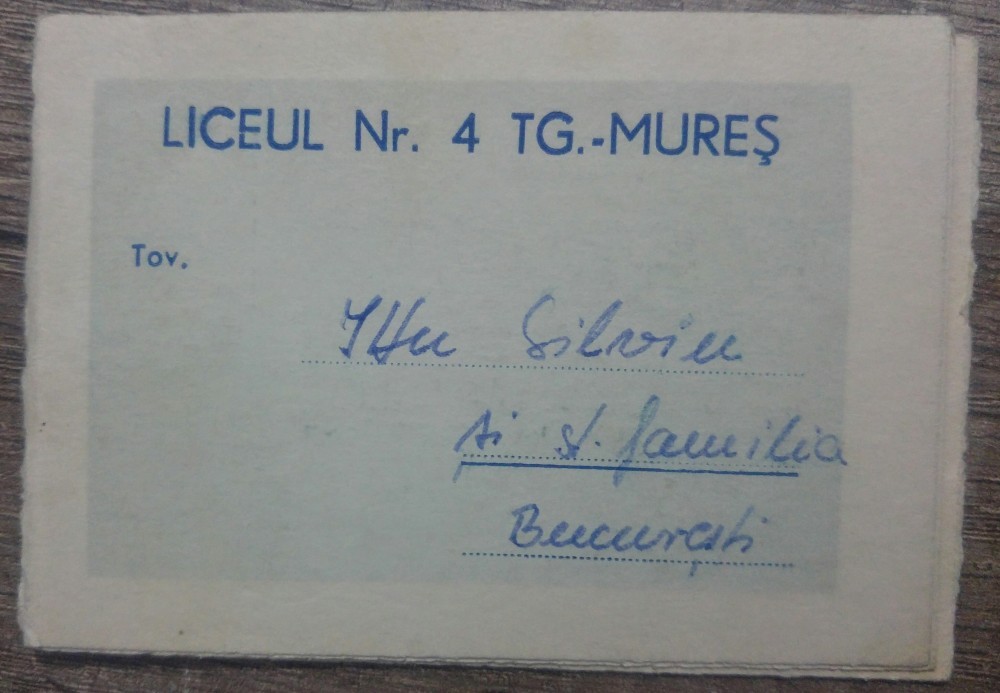 LICEUL Nr. 4 TG.-MUREŞ
Tov.
Ittu Silviu
și st. familia
București